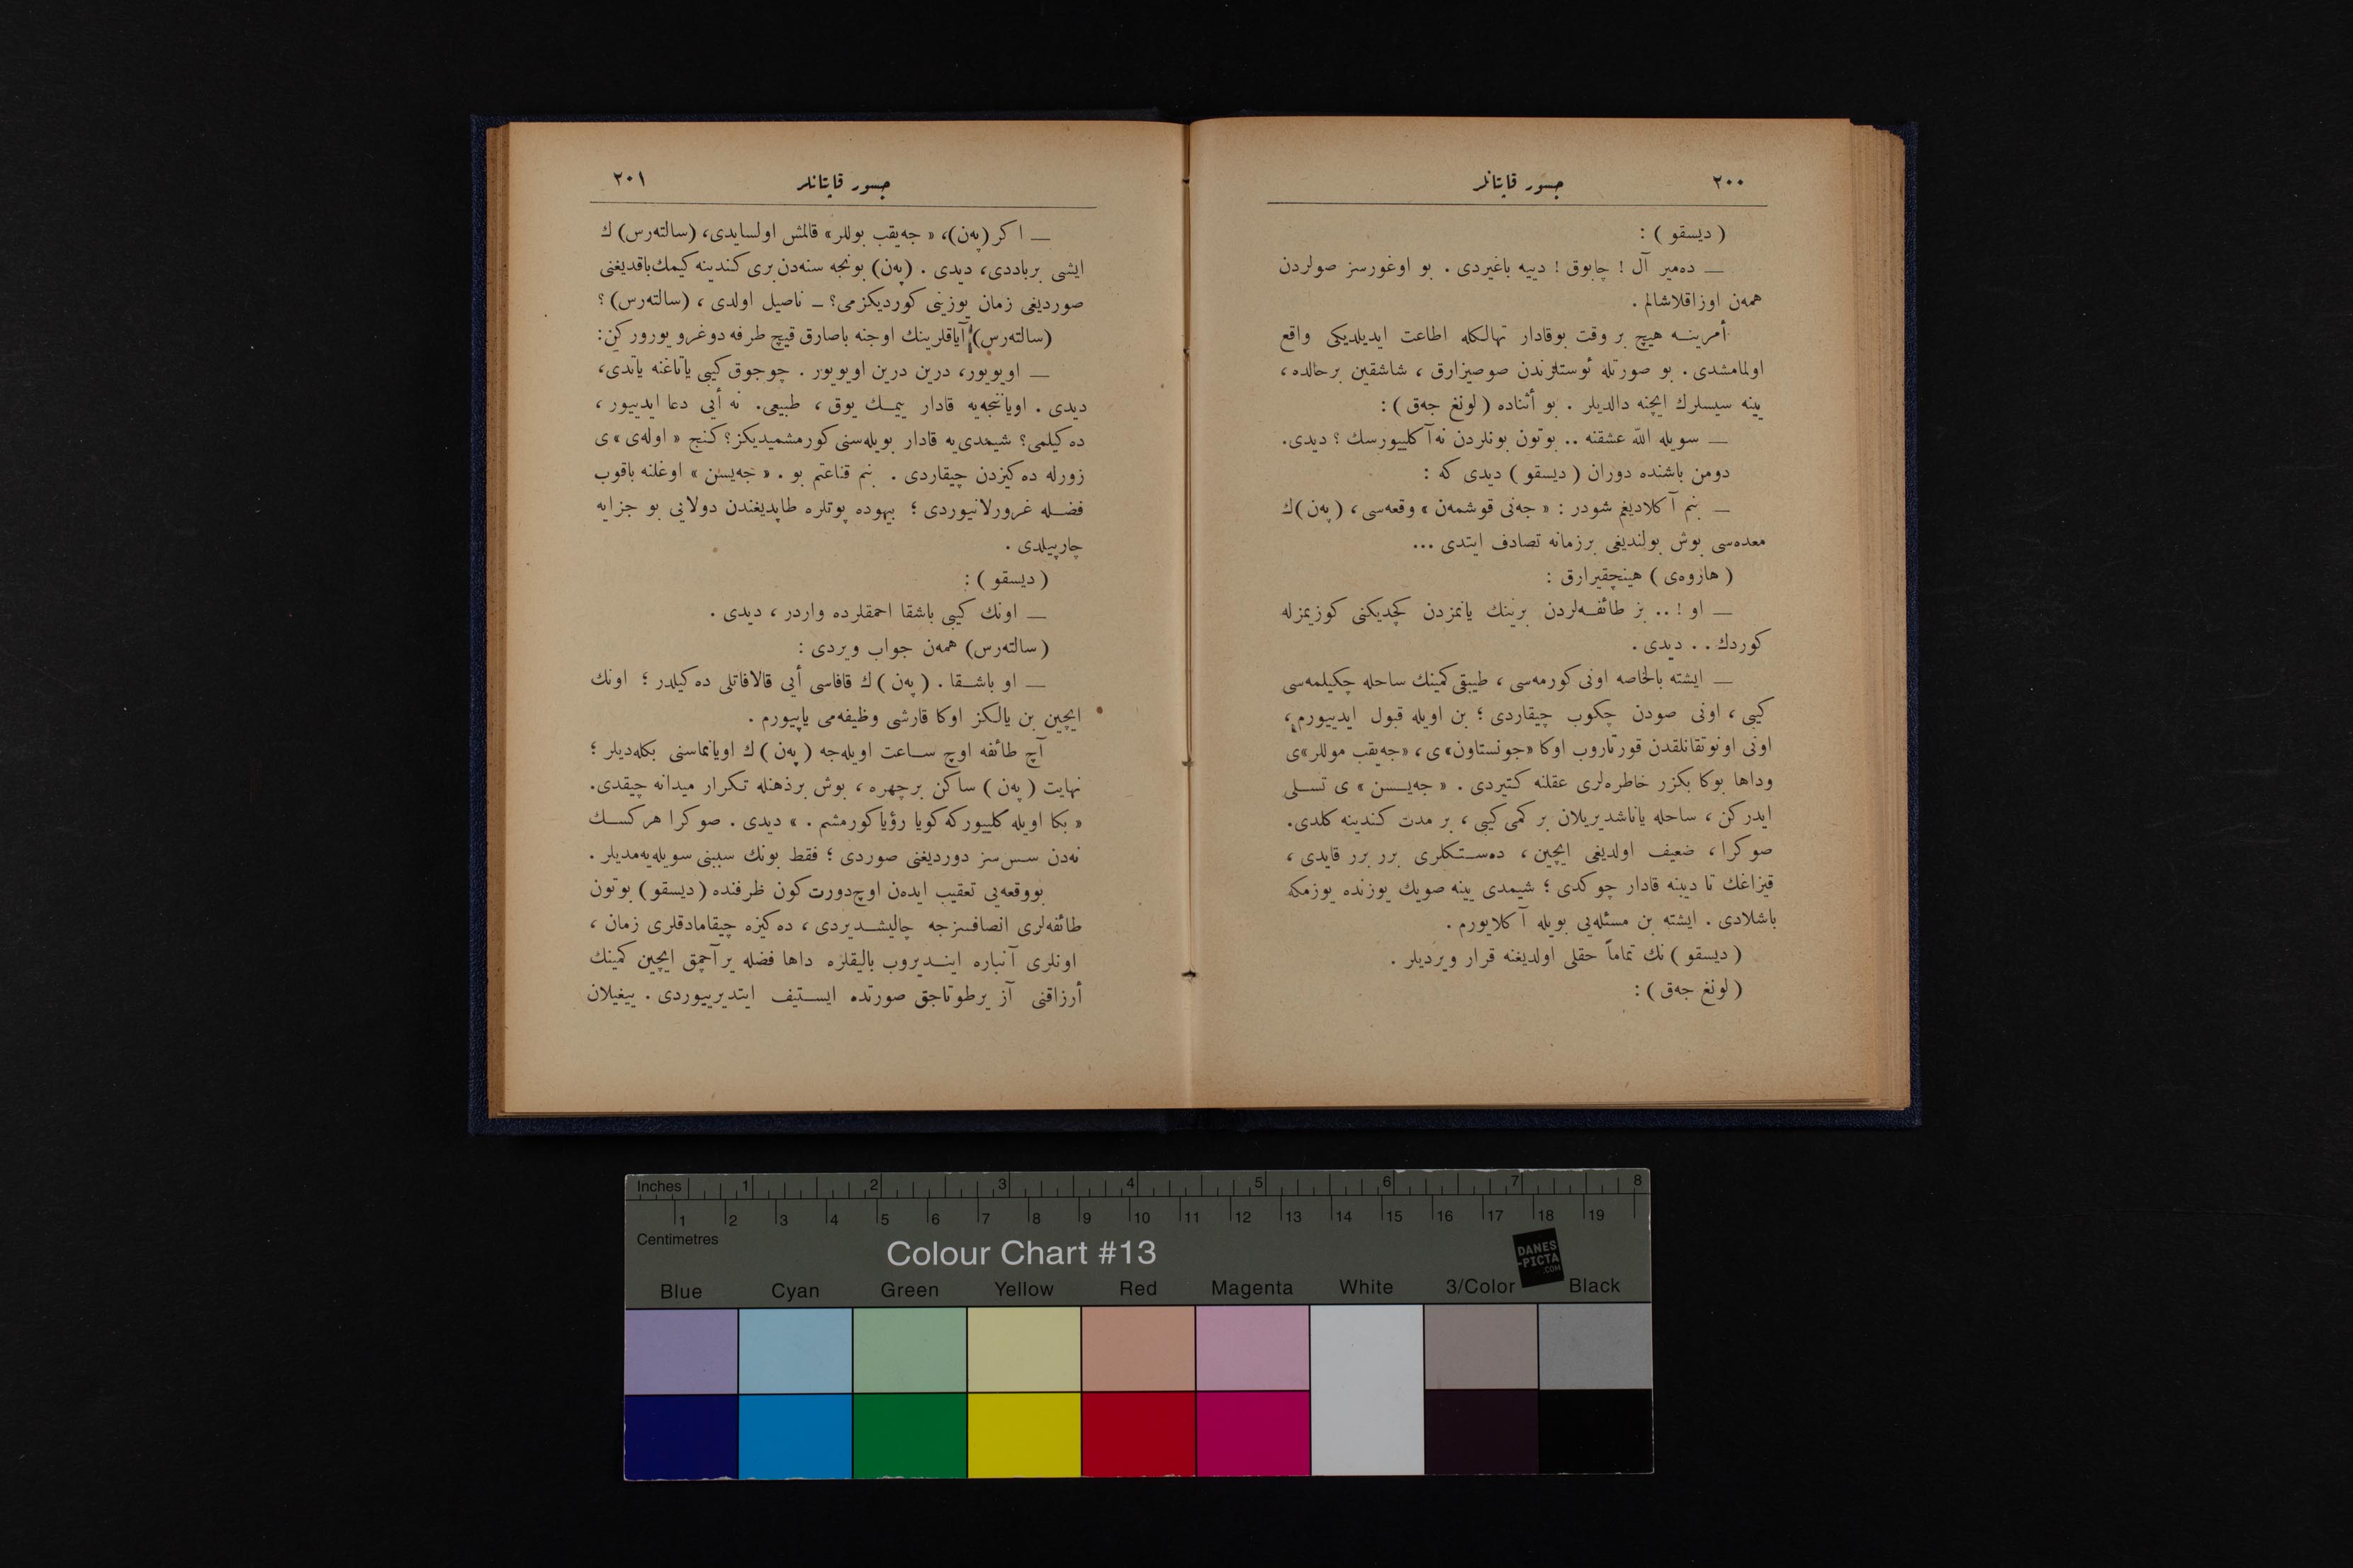 ٢٠٠
جسور قاپتانلر
( ديسقو ) :
— دەمير آل ! چابوق ! دييه باغيردی . بو اوغورسز صولردن
همەن اوزاقلاشالم .
أمرينه هيچ بر وقت بوقادار تهالكله اطاعت ايديلديكی واقع
اولمامشدی . بو صورتله ئوستلرندن صوصيزارق ، شاشقين برحالده ،
يينه سيسلرك ايچنه دالديلر . بو أثناده ( لونغ جەق ) :
— سويله الله عشقنه .. بوتون بونلردن نه آكلييورسك ؟ ديدی .
دومن باشنده دوران ( ديسقو ) ديدی كه :
— بنم آكلاديغم شودر : « جەنی قوشمەن » وقعەسی ، ( پەن )ك
معدەسی بوش بولنديغی برزمانه تصادف ايتدی ...
( هاروەی ) هينچقيرارق :
— او ! .. بز طائفەلردن برينك يانمزدن كچديكنی كوزيمزله
كوردك . . ديدی .
— ايشته بالخاصه اونی كورمەسی ، طيبقی كمينك ساحله چكيلمەسی
كيبی ، اونی صودن چكوب چيقاردی ؛ بن اويله قبول ايدييورم ،
اونی اونوتقانلقدن قورتاروب اوكا «جونستاون»ی ، «جەيقب موللر»ی
وداها بوكا بكزر خاطرەلری عقلنه كتيردی . « جەيسن » ی تسلی
ايدركن ، ساحله ياناشديريلان بر كمی كيبی ، بر مدت كندينه كلدی .
صوكرا ، ضعيف اولديغی ايچين ، دەستكلری برر برر قايدی ،
قيزاغك تا ديبنه قادار چوكدی ؛ شيمدی يينه صويك يوزنده يوزمكه
باشلادی . ايشته بن مسئلەيی بويله آكلايورم .
( ديسقو ) نك تماماً حقلی اولديغنه قرار ويرديلر .
( لونغ جەق ) :
جسور قاپتانلر
٢٠١
— اكر (پەن)، « جەيقب بوللر» قالمش اولسايدی، (سالتەرس) ك
ايشی برباددی، ديدی . (پەن) بونجه سنەدن بری كندينه كيمك باقديغنی
صورديغی زمان يوزينی كورديكزمی؟ – ناصيل اولدی ، (سالتەرس) ؟
(سالتەرس) آياقلرينك اوجنه باصارق قيچ طرفه دوغرو يورور كن :
— اويويور، درين درين اويويور . چوجوق كيبی ياتاغنه ياتدی،
ديدی . اويانجەيه قادار ييمك يوق ، طبيعی . نه أيی دعا ايدييور ،
دەكيلمی؟ شيمدی يه قادار بويلەسنی كورمشميديكز؟ كنج « اولەی »ی
زورله دەكيزدن چيقاردی . بنم قناعتم بو . « جەيسن » اوغلنه باقوب
فضله غرورلانيوردی ؛ بيهوده پوتلره طاپديغندن دولايی بو جزايه
چارپيلدی .
( ديسقو ) :
— اونك كيبی باشقا احمقلرده واردر ، ديدی .
(سالتەرس) همەن جواب ويردی :
— او باشقا . ( پەن ) ك قافاسی أيی قالافاتلی دەكيلدر ؛ اونك
ايچين بن يالكز اوكا قارشی وظيفەمی ياپيورم .
آچ طائفه اوچ ساعت اويلەجه ( پەن ) ك اويانماسنی بكلەديلر ؛
نهايت ( پەن ) ساكن برچهره ، بوش برذهنله تكرار ميدانه چيقدی .
« بكا اويله كلييوركه كويا رؤيا كورمشم . » ديدی . صوكرا هركسك
نەدن سس‌سز دورديغنی صوردی ؛ فقط بونك سببنی سويلەيەمديلر .
بووقعەيی تعقيب ايدەن اوچ‌دورت كون ظرفنده (ديسقو ) بوتون
طائفەلری انصافسزجه چاليشديردی ، دەكيزه چيقامادقلری زمان ،
اونلری آنباره اينديروب باليقلره داها فضله يرآچمق ايچين كمينك
أرزاقنی آز يرطوتاجق صورتده ايستيف ايتديرييوردی . ييغيلان
Inches 1 2 3 4 5 6 7 8
1 2 3 4 5 6 7 8 9 10 11 12 13 14 15 16 17 18 19
Centimetres
Colour Chart #13
DANES
-PICTA
.COM
Blue Cyan Green Yellow Red Magenta White 3/Color Black